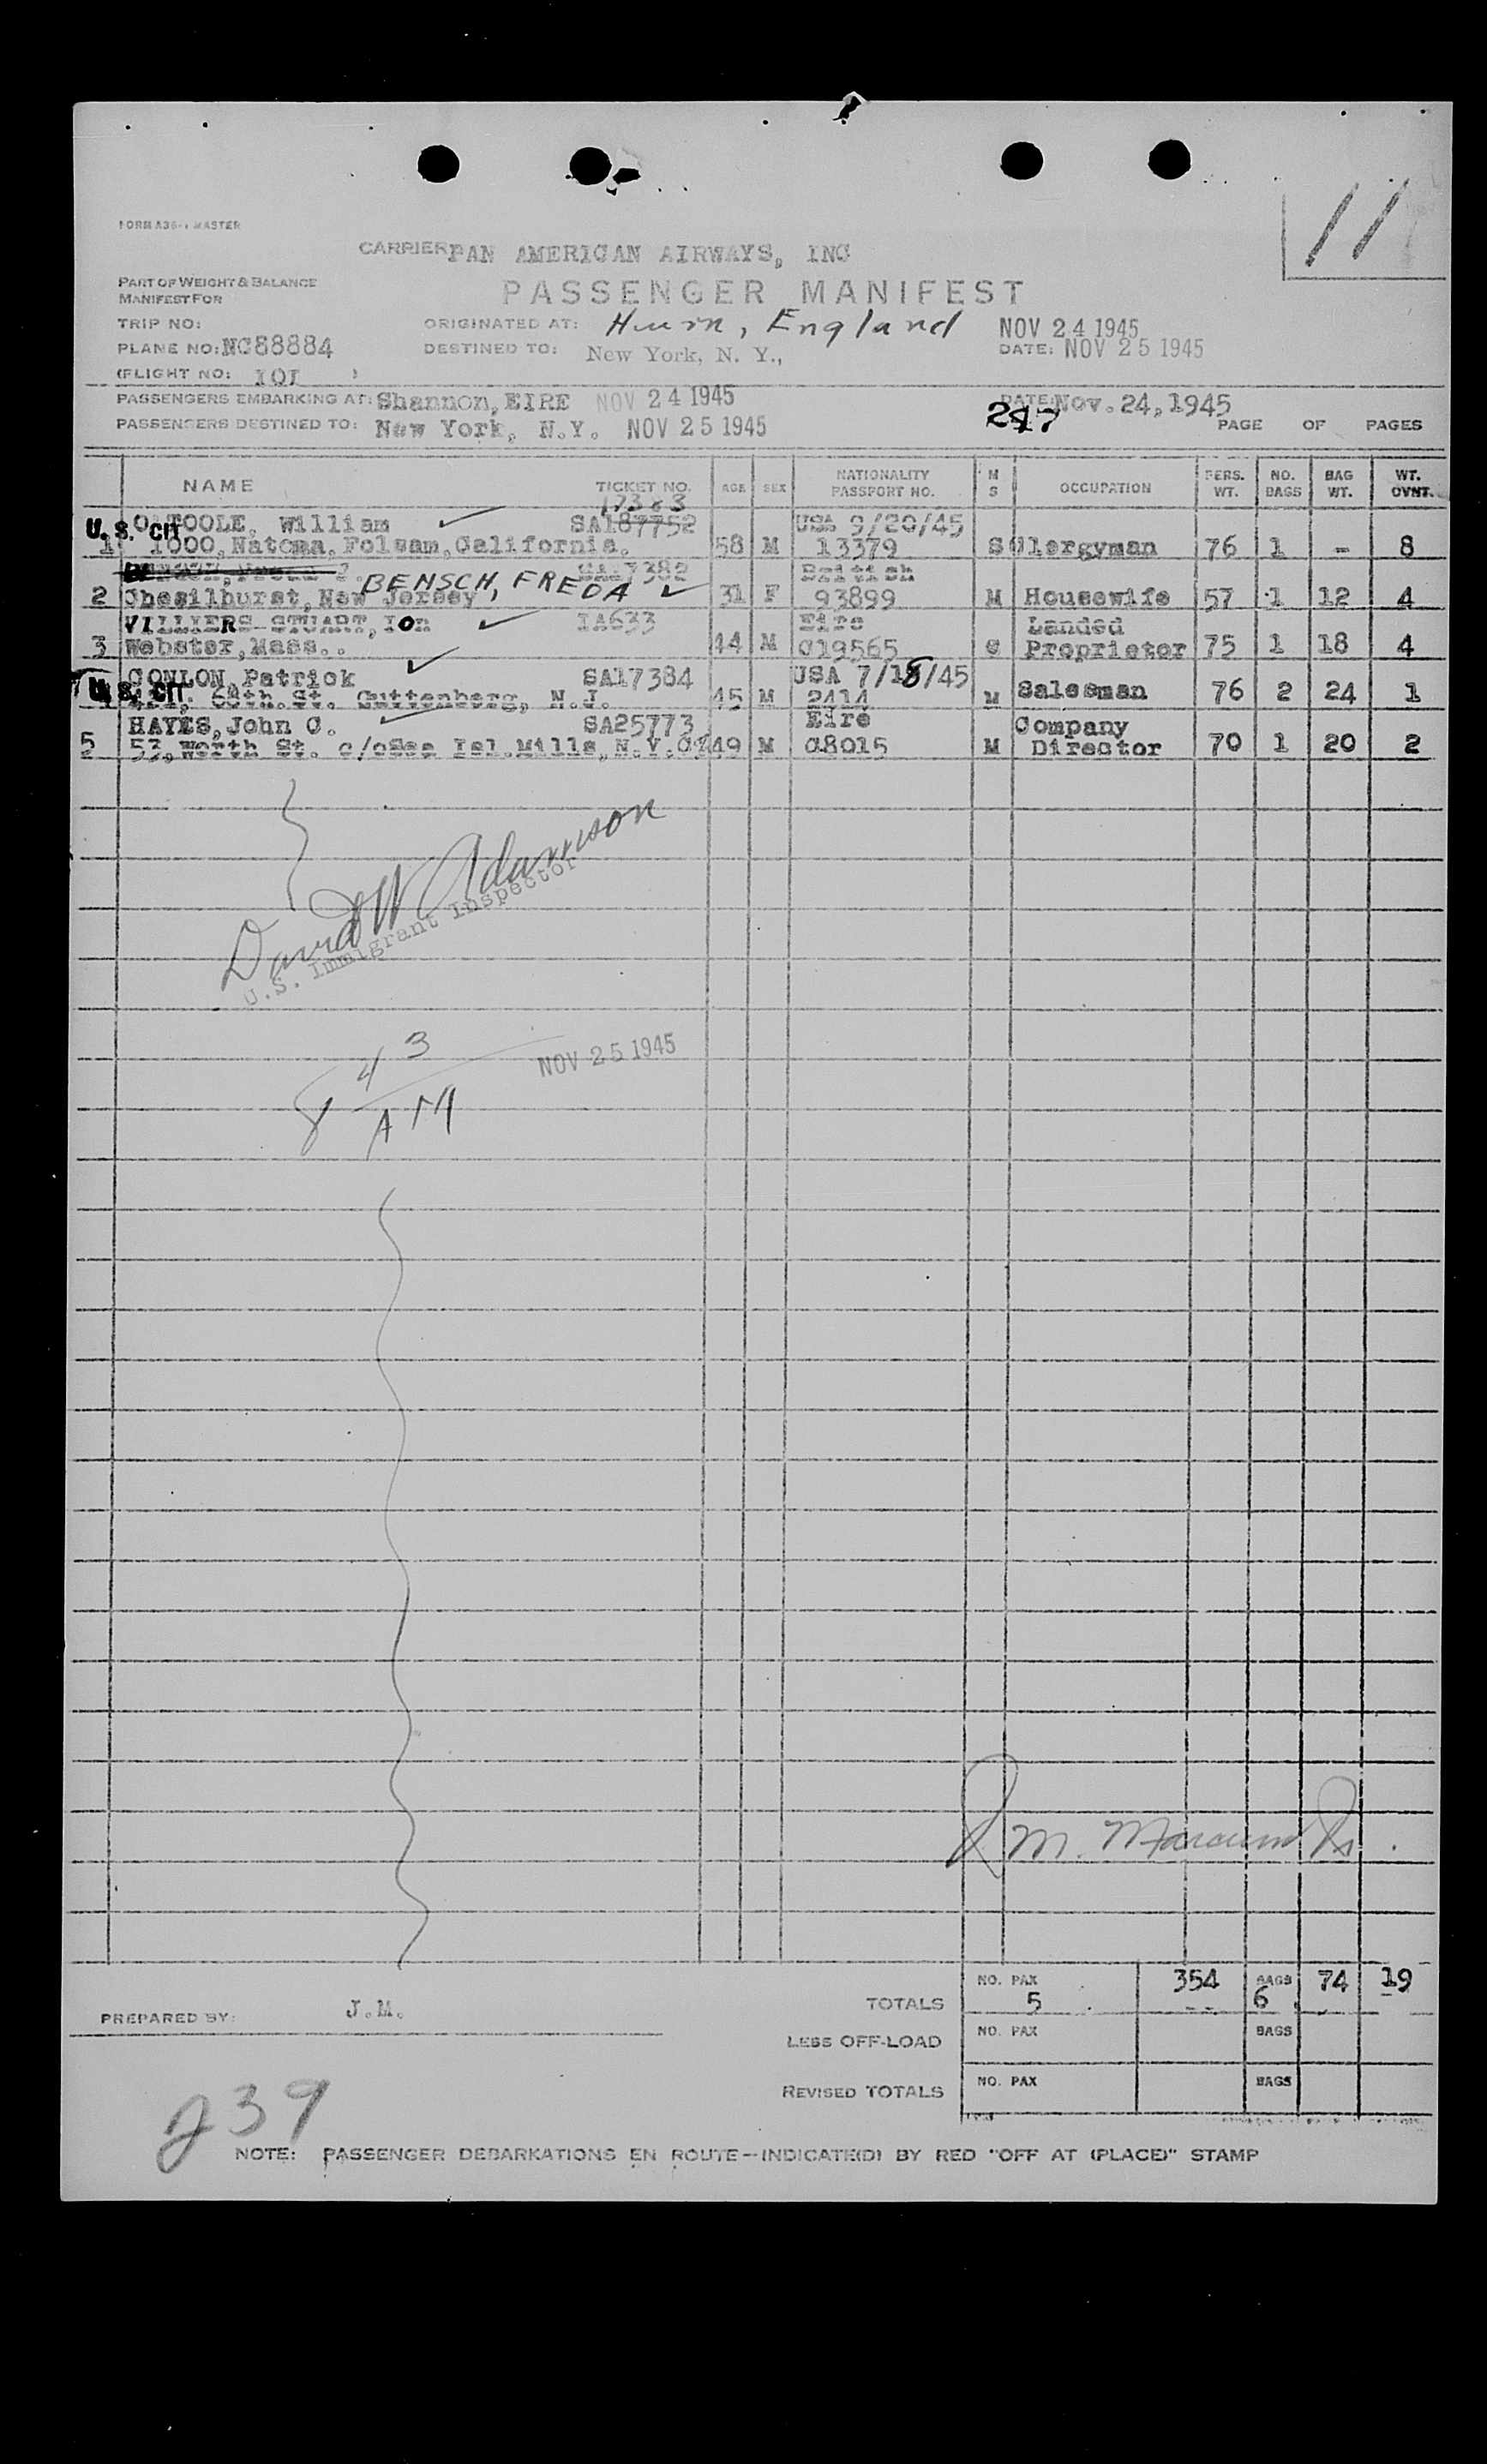 FORM A36-1 MASTER
11
CARRIER: PAN AMERICAN AIRWAYS, INC
PART OF WEIGHT & BALANCE
MANIFEST FOR
PASSENGER MANIFEST
TRIP NO:
ORIGINATED AT: Hurn, England NOV 24 1945
PLANE NO: NC88884
DESTINED TO: New York, N. Y., DATE: NOV 25 1945
(FLIGHT NO: 101 )
PASSENGERS EMBARKING AT: Shannon, EIRE NOV 24 1945 DATE: Nov. 24, 1945
PASSENGERS DESTINED TO: New York, N.Y. NOV 25 1945 247 PAGE OF PAGES
NAME TICKET NO. AGE SEX NATIONALITY PASSPORT NO. M S OCCUPATION PERS. WT. NO. BAGS BAG WT. WT. OVNT.
17383
U.S. CIT O'TOOLE, William SA187752 USA 9/20/45
1 1000, Natoma, Folsam, California. 58 M 13379 S Clergyman 76 1 - 8
BENSCH, FREDA SA17382 British
2 Chesilhurst, New Jersey 31 F 93899 M Housewife 57 1 12 4
VILLIERS-STUART, Ion IA633 Eire Landed
3 Webster, Mass.. 44 M C19565 S Proprietor 75 1 18 4
CONLON, Patrick SA17384 USA 7/18/45
U.S. CIT 68th. St. Guttenberg, N.J. 45 M 2414 M Salesman 76 2 24 1
HAYES, John C. SA25773 Eire Company
5 53, Worth St. c/o Sea Isl. Mills, N.Y. 49 M C8015 M Director 70 1 20 2
David W Adamson
U.S. Immigrant Inspector
8 43
AM
NOV 25 1945
TOTALS NO. PAX 5 354 BAGS 6 74 19
PREPARED BY: J.M.
LESS OFF-LOAD NO. PAX BAGS
REVISED TOTALS NO. PAX BAGS
239
NOTE: PASSENGER DEBARKATIONS EN ROUTE--INDICATE(D) BY RED "OFF AT (PLACE)" STAMP